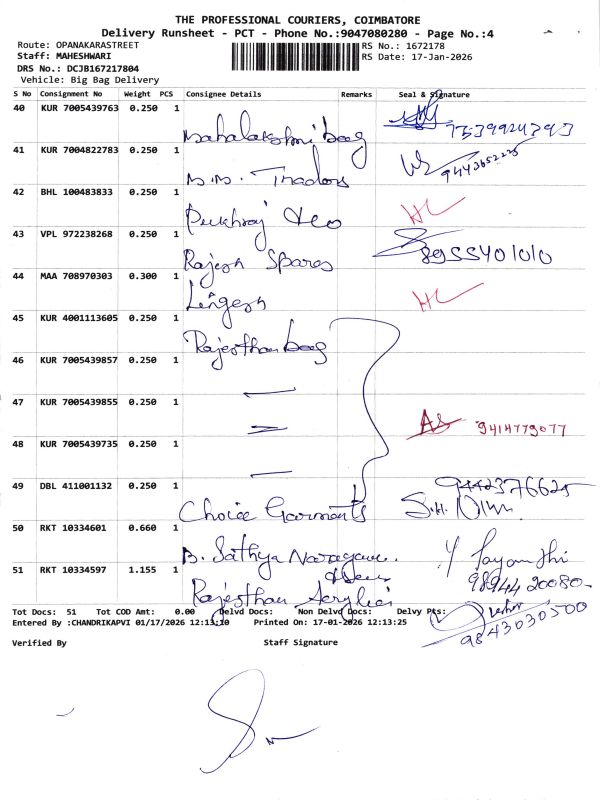 THE PROFESSIONAL COURIERS, COIMBATORE
Delivery Runsheet - PCT - Phone No.:9047080280 - Page No.:4
Route: OPANAKARASTREET RS No.: 1672178
Staff: MAHESHWARI RS Date: 17-Jan-2026
DRS No.: DCJB167217804
Vehicle: Big Bag Delivery
S No Consignment No Weight PCS Consignee Details Remarks Seal & Signature
40 KUR 7005439763 0.250 1 Mahalakshmi bag
41 KUR 7004822783 0.250 1 M.M. Traders 9443652225
42 BHL 100483833 0.250 1 Pukhraj
43 VPL 972238268 0.250 1 Rajesh Spares 8955401010
44 MAA 708970303 0.300 1 Lingesh
45 KUR 4001113605 0.250 1 Rajesthan bag
46 KUR 7005439857 0.250 1
47 KUR 7005439855 0.250 1 9414779077
48 KUR 7005439735 0.250 1
49 DBL 411001132 0.250 1 Choice Garments 9442376625
50 RKT 10334601 0.660 1 B. Sathya Narayana
51 RKT 10334597 1.155 1 Rajesthan 98944 20080
Tot Docs: 51 Tot COD Amt: 0.00 Delvd Docs: Non Delvd Docs: Delvy Pts:
Entered By :CHANDRIKAPVI 01/17/2026 12:13:10 Printed On: 17-01-2026 12:13:25
9843030500
Verified By Staff Signature